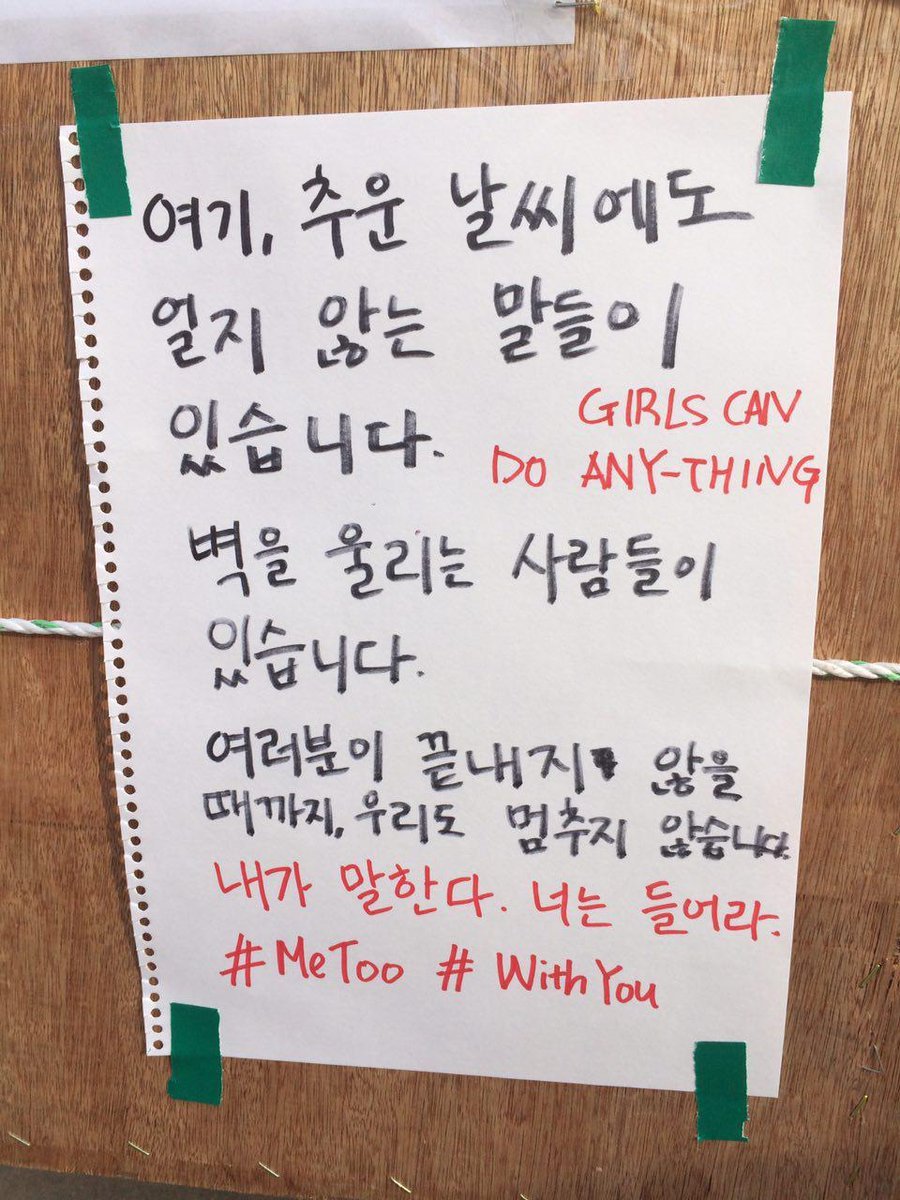 여기, 추운 날씨에도
얼지 않는 말들이
있습니다.
GIRLS CAN
DO ANY-THING
벽을 울리는 사람들이
있습니다.
여러분이 끝내지 않을
때까지, 우리도 멈추지 않습니다.
내가 말한다. 너는 들어라.
#MeToo # WithYou